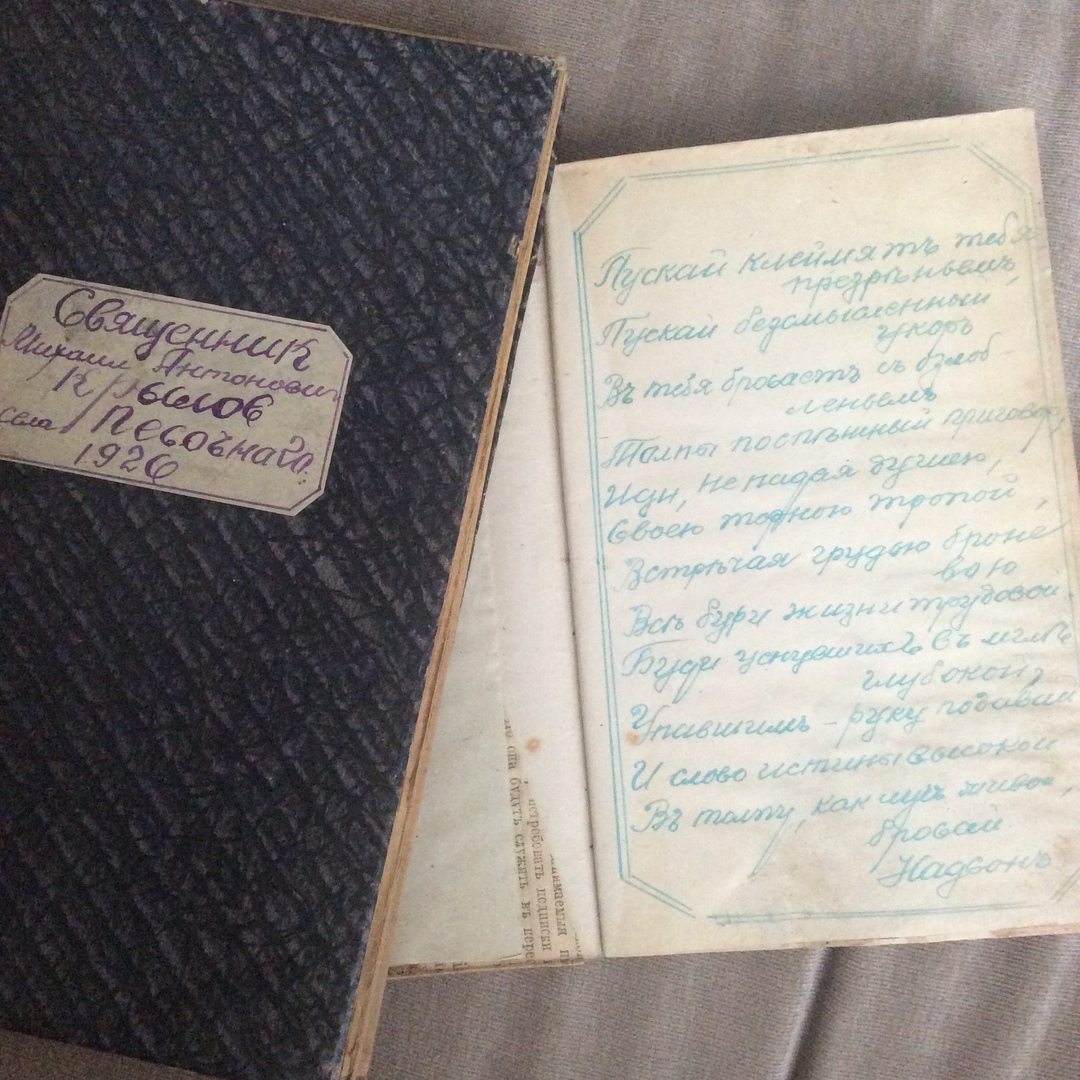 Священник
Михаил Антонович
Крылов
села Песочнаго.
1926
Пускай клеймятъ тебя
презрѣньемъ,
Пускай безсмысленный
укоръ
Въ тебя бросаетъ съ озлоб-
леньемъ
Толпы поспѣшный приговоръ,
Иди, не падая душею,
Своею торною тропой,
Встрѣчая грудью броне
вою
Всѣ бури жизни трудовой.
Буди уснувшихъ въ мглѣ
глубокой,
Упавшимъ – руку подавай
И слово истины высокой
Въ толпу, как лучъ живой,
бросай.
Надсонъ
но они будутъ служить къ перес
потребовать подписки
нимаемыя